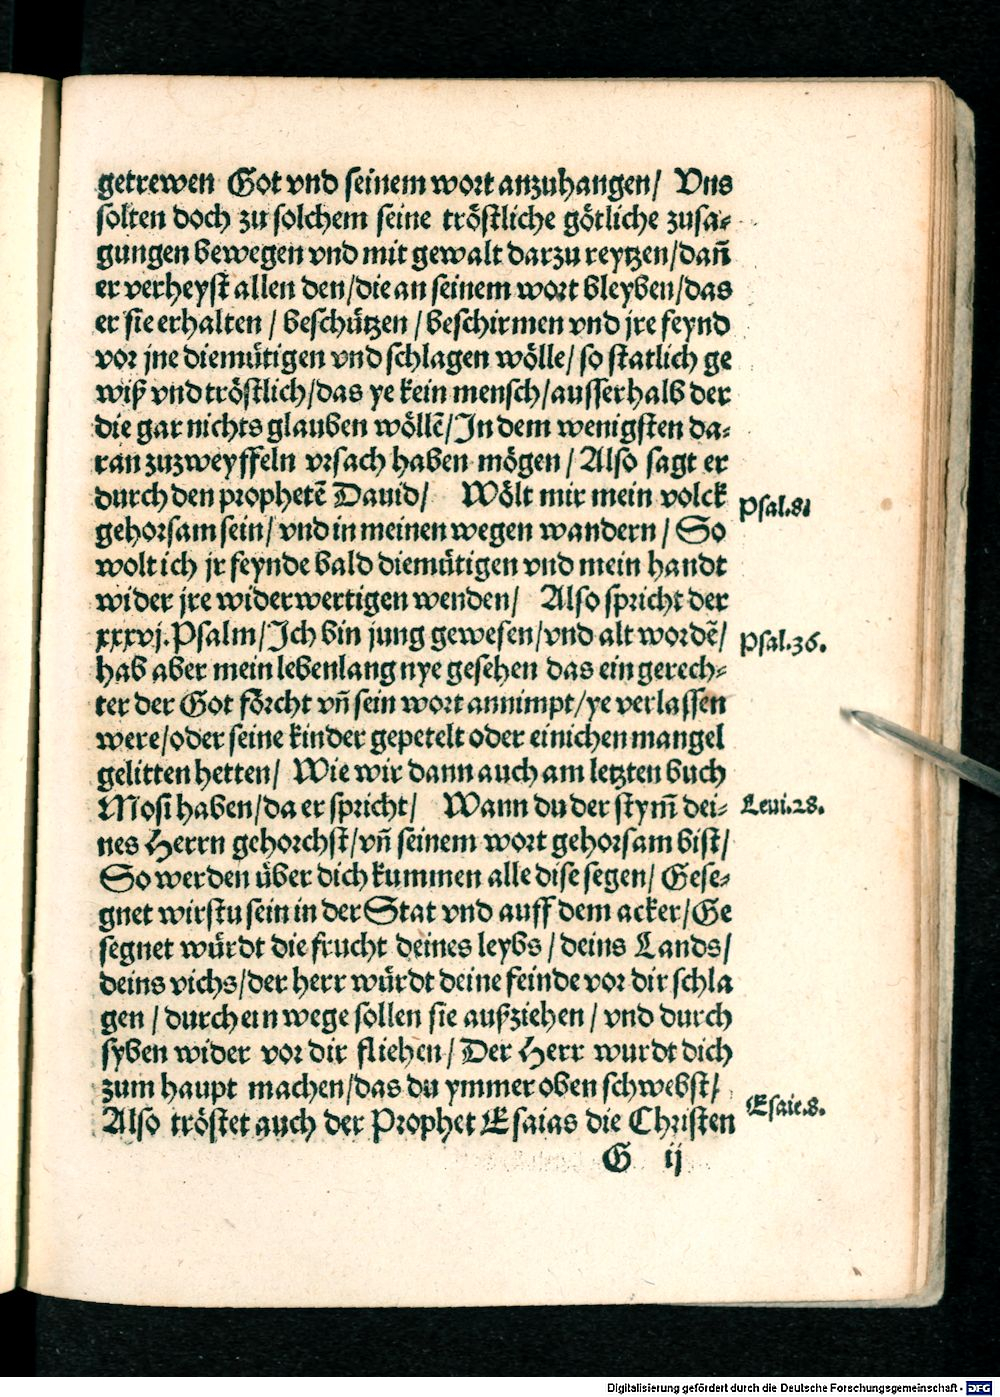 getrewen Got vnd seinem wort anzuhangen/ Vns
solten doch zu solchem seine tröstliche götliche zusa-
gungen bewegen vnd mit gewalt darzu reytzen/dañ
er verheyst allen den/die an seinem wort bleyben/das
er sie erhalten / beschützen / beschirmen vnd jre feynd
vor jne diemütigen vnd schlagen wölle/ so statlich ge
wiß vnd tröstlich/das ye kein mensch/ausserhalb der
die gar nichts glauben wöllē/In dem wenigsten da-
ran zuzweyffeln vrsach haben mögen / Also sagt er
durch den prophetē Dauid/ Wölt mir mein volck
Psal.8.
gehorsam sein/ vnd in meinen wegen wandern / So
wolt ich jr feynde bald diemütigen vnd mein handt
wider jre widerwertigen wenden/ Also spricht der
xxxvj.Psalm/Ich bin jung gewesen/vnd alt wordē/
Psal.36.
hab aber mein lebenlang nye gesehen das ein gerech-
ter der Got förcht vñ sein wort annimpt/ye verlassen
were/oder seine kinder gepetelt oder einichen mangel
gelitten hetten/ Wie wir dann auch am letzten buch
Mosi haben/da er spricht/ Wann du der stym̄ dei-
Leui.28.
nes Herrn gehorchst/vñ seinem wort gehorsam bist/
So werden über dich kummen alle dise segen/ Gese-
gnet wirstu sein in der Stat vnd auff dem acker/Ge
segnet würdt die frucht deines leybs / deins Lands/
deins vichs/der herr würdt deine feinde vor dir schla
gen / durch ein wege sollen sie außziehen / vnd durch
syben wider vor dir fliehen/ Der Herr wurdt dich
zum haupt machen/das du ymmer oben schwebst/
Also tröstet auch der Prophet Esaias die Christen
Esaie.8.
G ij
Digitalisierung gefördert durch die Deutsche Forschungsgemeinschaft - DFG